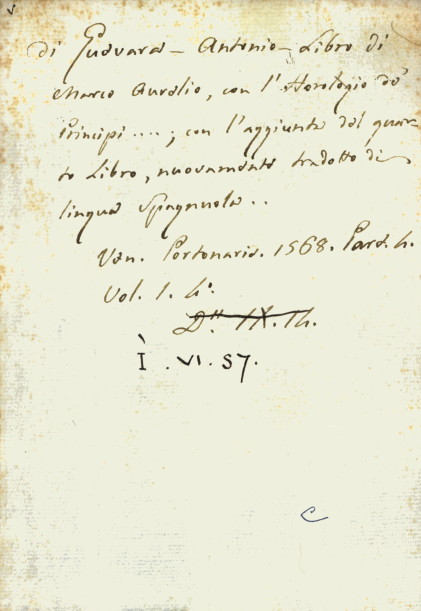 di Guevara - Antonio - Libro di
Marco Aurelio, con l'Horologio de'
Principi ....; con l'aggiunta del quar-
to Libro, nuovamente tradotto di
lingua Spagnuola ..
Ven. Portonaris. 1568. Part. 4.
Vol. 1. 4°.
D.. IX. 14.
I . VI . 57.
C